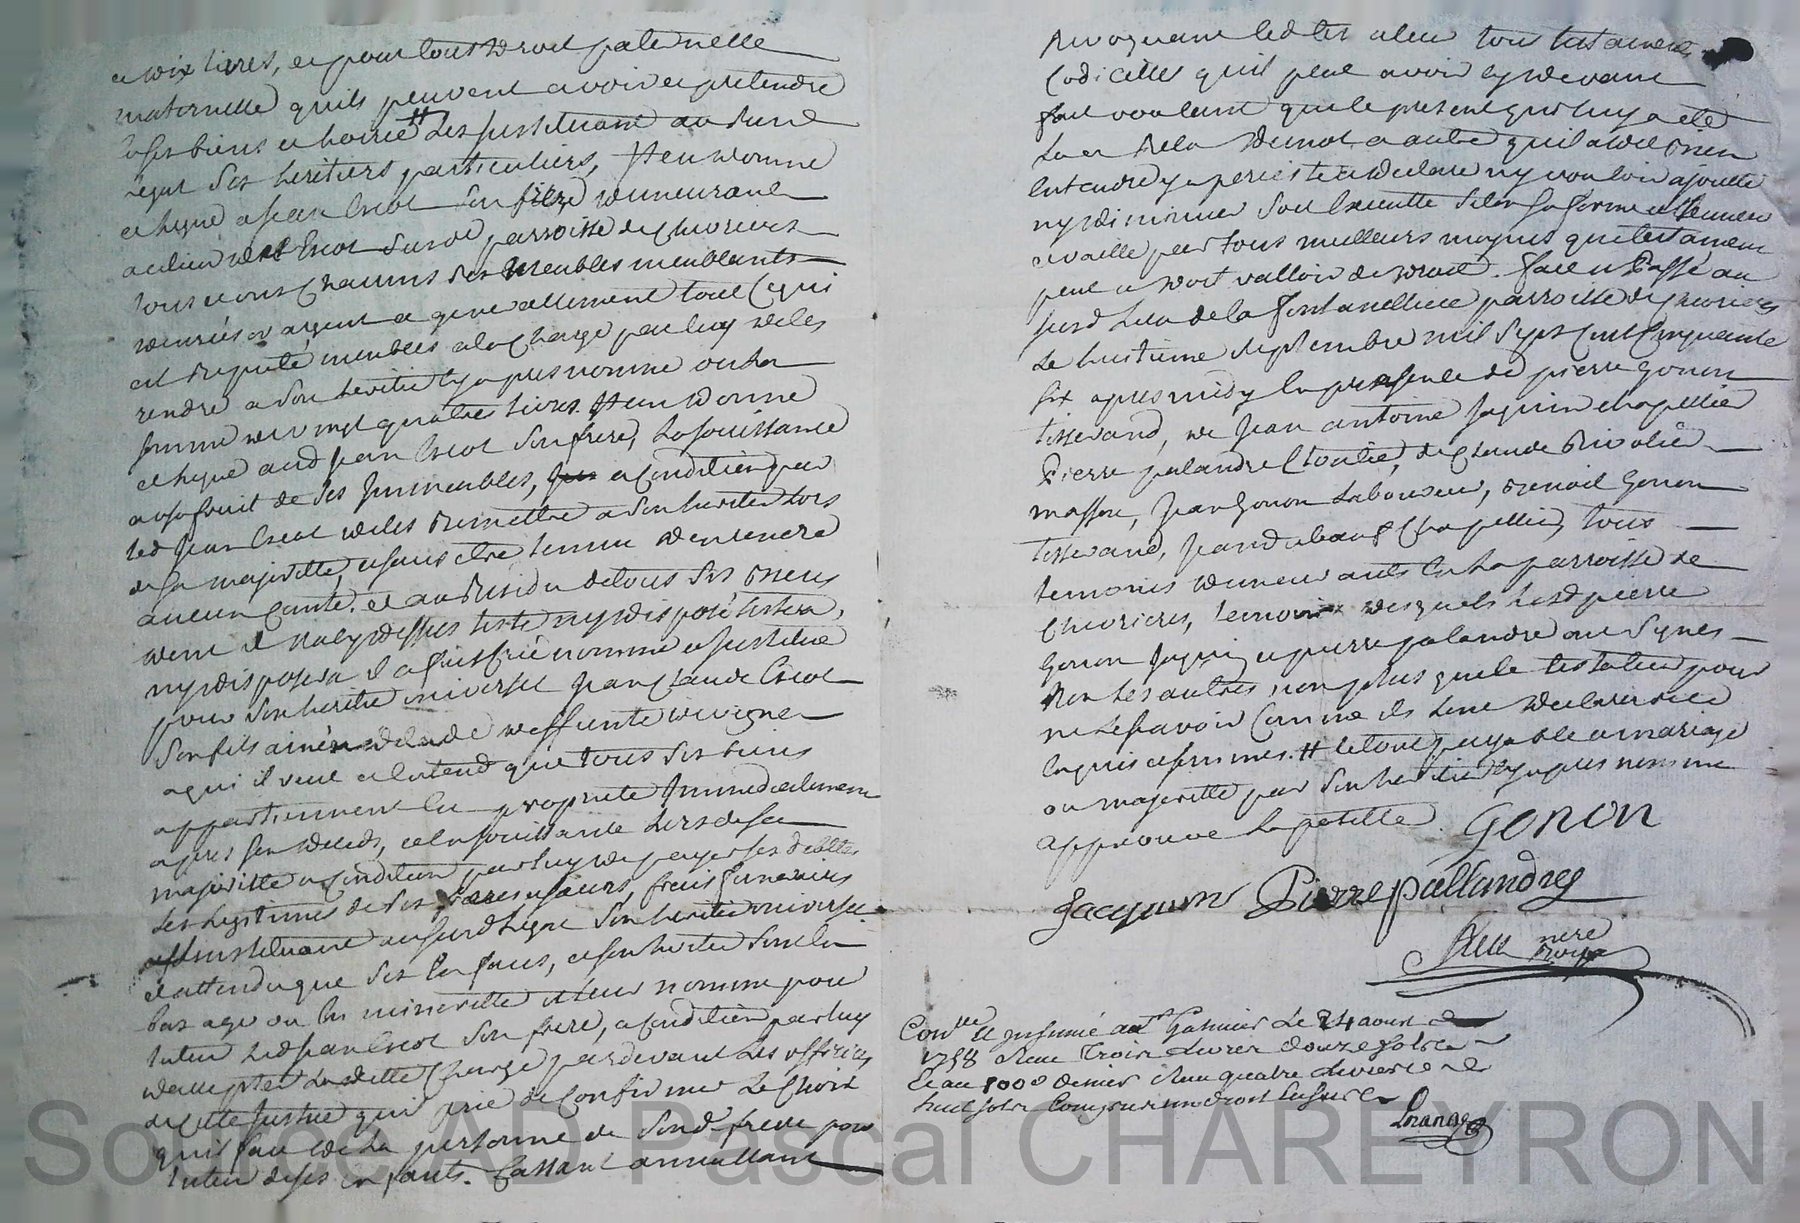 a dix livres, et pour tous droit paternelle
maternelle quils peuvent avoir et pretendre
a ses biens et hoirie # les instituant audit
legat ses heritiers particuliers, Item donne
et legue a jean Crot son frere demeurant
au lieu del Crot susd parroisse de chevrieres
tous et uns chacuns ses meubles meublants
denrées or argent et generallement tout ce qui
est reputé meubles a la charge par luy de les
rendre a son heritier cy apres nommé ou la
somme de vingt quatre livres. Item donne
et legue aud jean Crot son frere, la jouissance
et usufruit de ses Immeubles, a condition par
led jean Crot de les remettre a son heritier lors
de sa majoritté, sans etre tenu den rendre
aucun conte. et au Residu de tous ses biens
dont il na cy dessus testé ny disposé testera,
ny disposera il a fait créé nommé institué
pour son heritier universel jean claude Crot
son fils ainé deffunte devigne
a qui il veut et entend que tous ses biens
appartiennent en propriete Immediatement
apres son deceds, et la jouissance lors de sa
majoritté a condition par luy de payer ses debtes
les legitimes de ses freres et soeurs, frais funeraires
linstituant au surd legat son heritier universel
et attendu que ses Enfans, et son heritier sont en
bas age ou en minoritté il leur nomme pour
tuteur led jean Crot son frere, a condition par luy
daccepter ladite charge pardevant les officiers
de cette justice quil prie de confirmer le choix
quil fait de la personne de sond frere pour
tuteur de ses enfants. Cassant annullant
Revoquant led tes ateur tous testaments
Codicilles quil peut avoir cy devant
fait voulant que le present qui luy a eté
Lu et Relu de mot a autre quil a dit bien
Entendre y a persisté et declaré ny vouloir ajoutter
ny diminuer soit executté selon sa forme et teneur
et vaille par tous meilleurs moyens que testament
peut et doit valloir de droit. fait et Passé au
susd Lieu de la fontanelliere parroisse de chevrieres
Le huitieme septembre mil sept cent cinquante
six apres midy En presence de pierre gonon
tisserand, de jean antoine jaquin chapellier
Pierre palandre Cloutié, de Claude Rivolier
masson, jean gonon Laboureur, benoit gonon
tisserand, chapellier, tous
temoins demeurants en la parroisse de
Chevrieres, temoins desquels lesd pierre
gonon jaquin et pierre palandre ont signes
Non les autres, non plus que le testateur pour
ne le scavoir Comme ils lont declaré de ce
enquis et sommes. # le tout payable a mariage
ou majoritté par son heritier cy apres nommé
approuvé la postille Gonon
Jacquin Pierre pallandres
nere Roy
Con.lle Et jnsinué a St Galmier Le 24 aout
1758 Reçu Trois Livres douze sols
Et au 100e denier Reçu quatre Livres
huit sols Compris un droit